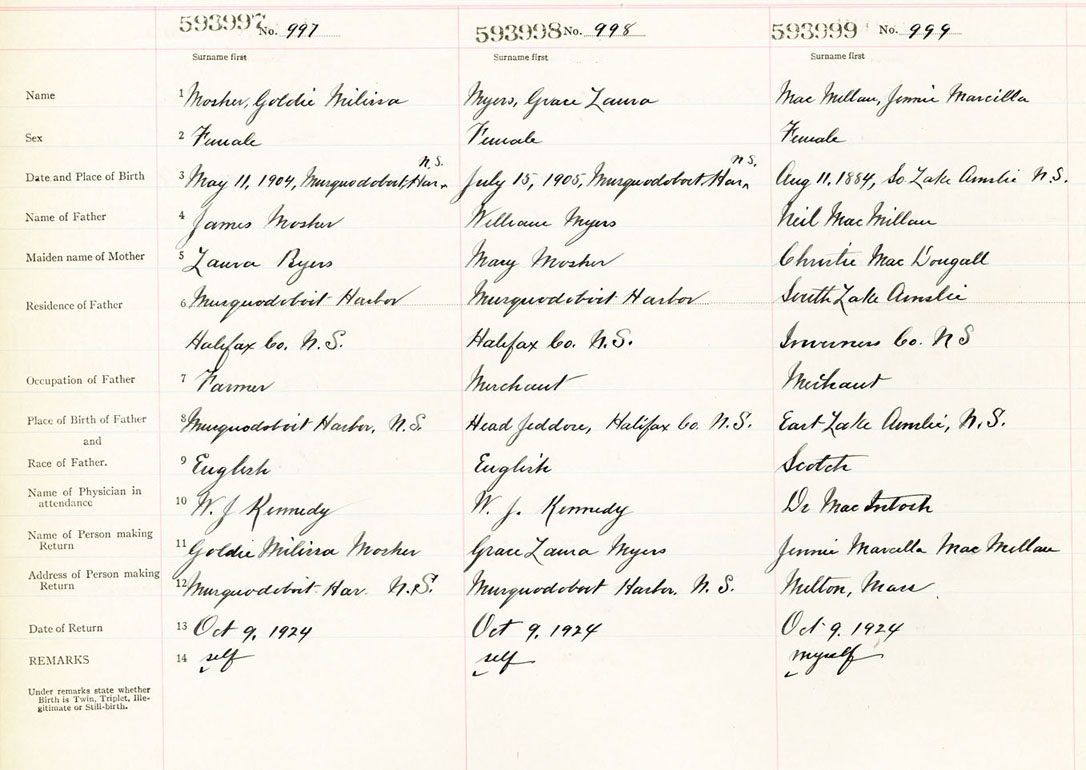 593997 No. 997 593998 No. 998 593999 No. 999
Surname first Surname first Surname first
Name 1 Mosher, Goldie Milissa Myers, Grace Laura Mac Millan, Jennie Marcella
Sex 2 Female Female Female
N.S. N.S.
Date and Place of Birth 3 May 11, 1904, Musquodoboit Har. July 15, 1905, Musquodoboit Har. Aug 11, 1884, So Lake Ainslie N.S.
Name of Father 4 James Mosher William Myers Neil Mac Millan
Maiden name of Mother 5 Laura Byers Mary Mosher Christie Mac Dougall
Residence of Father 6 Musquodoboit Harbor Musquodoboit Harbor South Lake Ainslie
Halifax Co. N.S. Halifax Co. N.S. Inverness Co. N S
Occupation of Father 7 Farmer Merchant Merchant
Place of Birth of Father 8 Musquodoboit Harbor, N.S. Head Jeddore, Halifax Co. N.S. East Lake Ainslie, N.S.
and
Race of Father. 9 English English Scotch
Name of Physician in
attendance 10 W. J Kennedy W. J. Kennedy Dr Mac Intosh
Name of Person making
Return 11 Goldie Milissa Mosher Grace Laura Myers Jennie Marcella Mac Millan
Address of Person making
Return 12 Musquodoboit Har. N.S. Musquodoboit Harbor, N.S. Milton, Mass
Date of Return 13 Oct 9, 1924 Oct 9, 1924 Oct 9, 1924
REMARKS 14 self self myself
Under remarks state whether
Birth is Twin, Triplet, Ille-
gitimate or Still-birth.